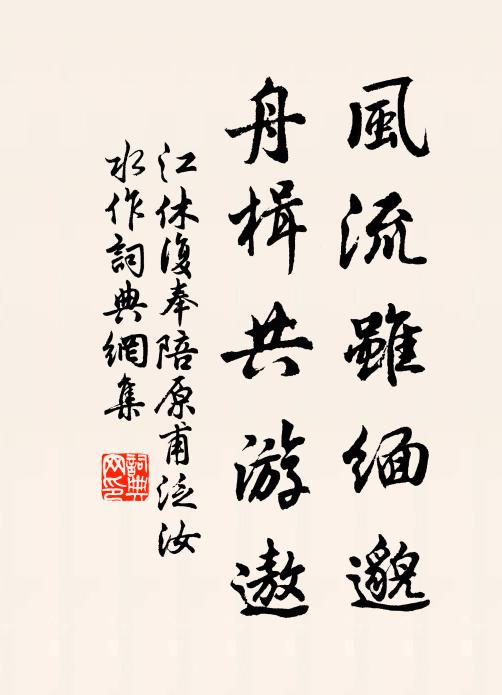 風流雖緬邈
舟楫共游遨
江休復奉陪原甫泛汝
水作詞典網集
詞典
网印